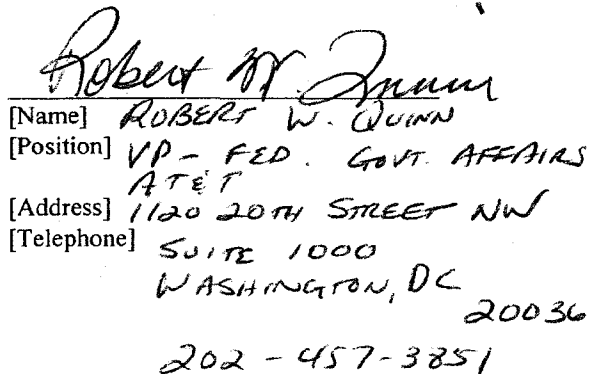 Robert W. Quinn
[Name] ROBERT W. QUINN
[Position] VP - FED. GOVT. AFFAIRS
AT&T
[Address] 1120 20TH STREET NW
[Telephone] SUITE 1000
WASHINGTON, DC
20036
202-457-3851